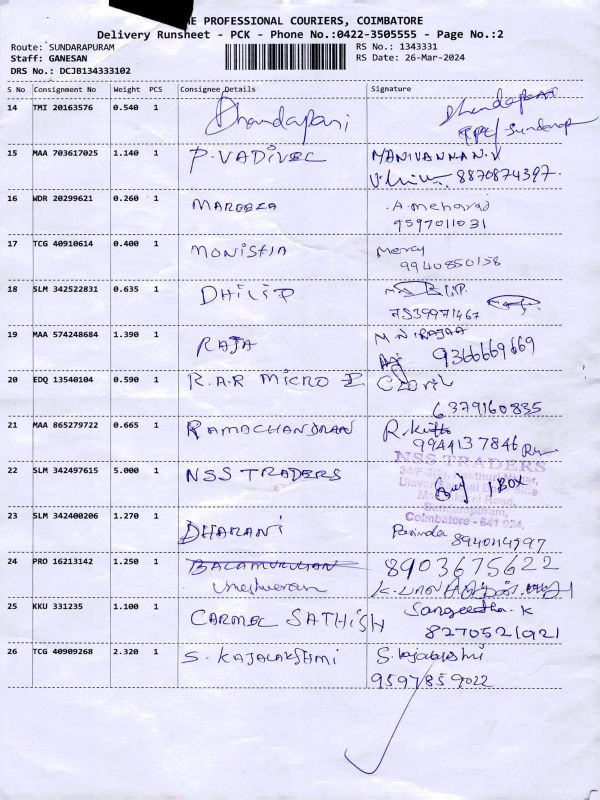 THE PROFESSIONAL COURIERS, COIMBATORE
Delivery Runsheet - PCK - Phone No.:0422-3505555 - Page No.:2
Route: SUNDARAPURAM RS No.: 1343331
Staff: GANESAN RS Date: 26-Mar-2024
DRS No.: DCJB134333102
S No Consignment No Weight PCS Consignee Details Signature
14 TMI 20163576 0.540 1 Dhandapani Dhandapani
15 MAA 703617025 1.140 1 P.VADIVEL MANIVANNAN.V
8870874397.
16 WDR 20299621 0.260 1 A.meharaj
9597011031
17 TCG 40910614 0.400 1 MONISHA Mercy
9940850158
18 SLM 342522831 0.635 1 DHILIP
7539971467
19 MAA 574248684 1.390 1 RAJA M.N.RAJAA
9366669669
20 EDQ 13540104 0.590 1 R.A.R MICRO
6379160835
21 MAA 865279722 0.665 1 RAMACHANDRAN R.
9944137846
22 SLM 342497615 5.000 1 NSS TRADERS 1 BOX
NSS TRADERS
Sundarapuram,
Coimbatore - 641 024.
23 SLM 342400206 1.270 1 DHARANI
24 PRO 16213142 1.250 1 BALAMURUGAN 8903675622
25 KKU 331235 1.100 1 CARMEL SATHISH Sangeetha.K
8270521021
26 TCG 40909268 2.320 1 S.RAJALAKSHMI S.Rajalakshmi
9597859022